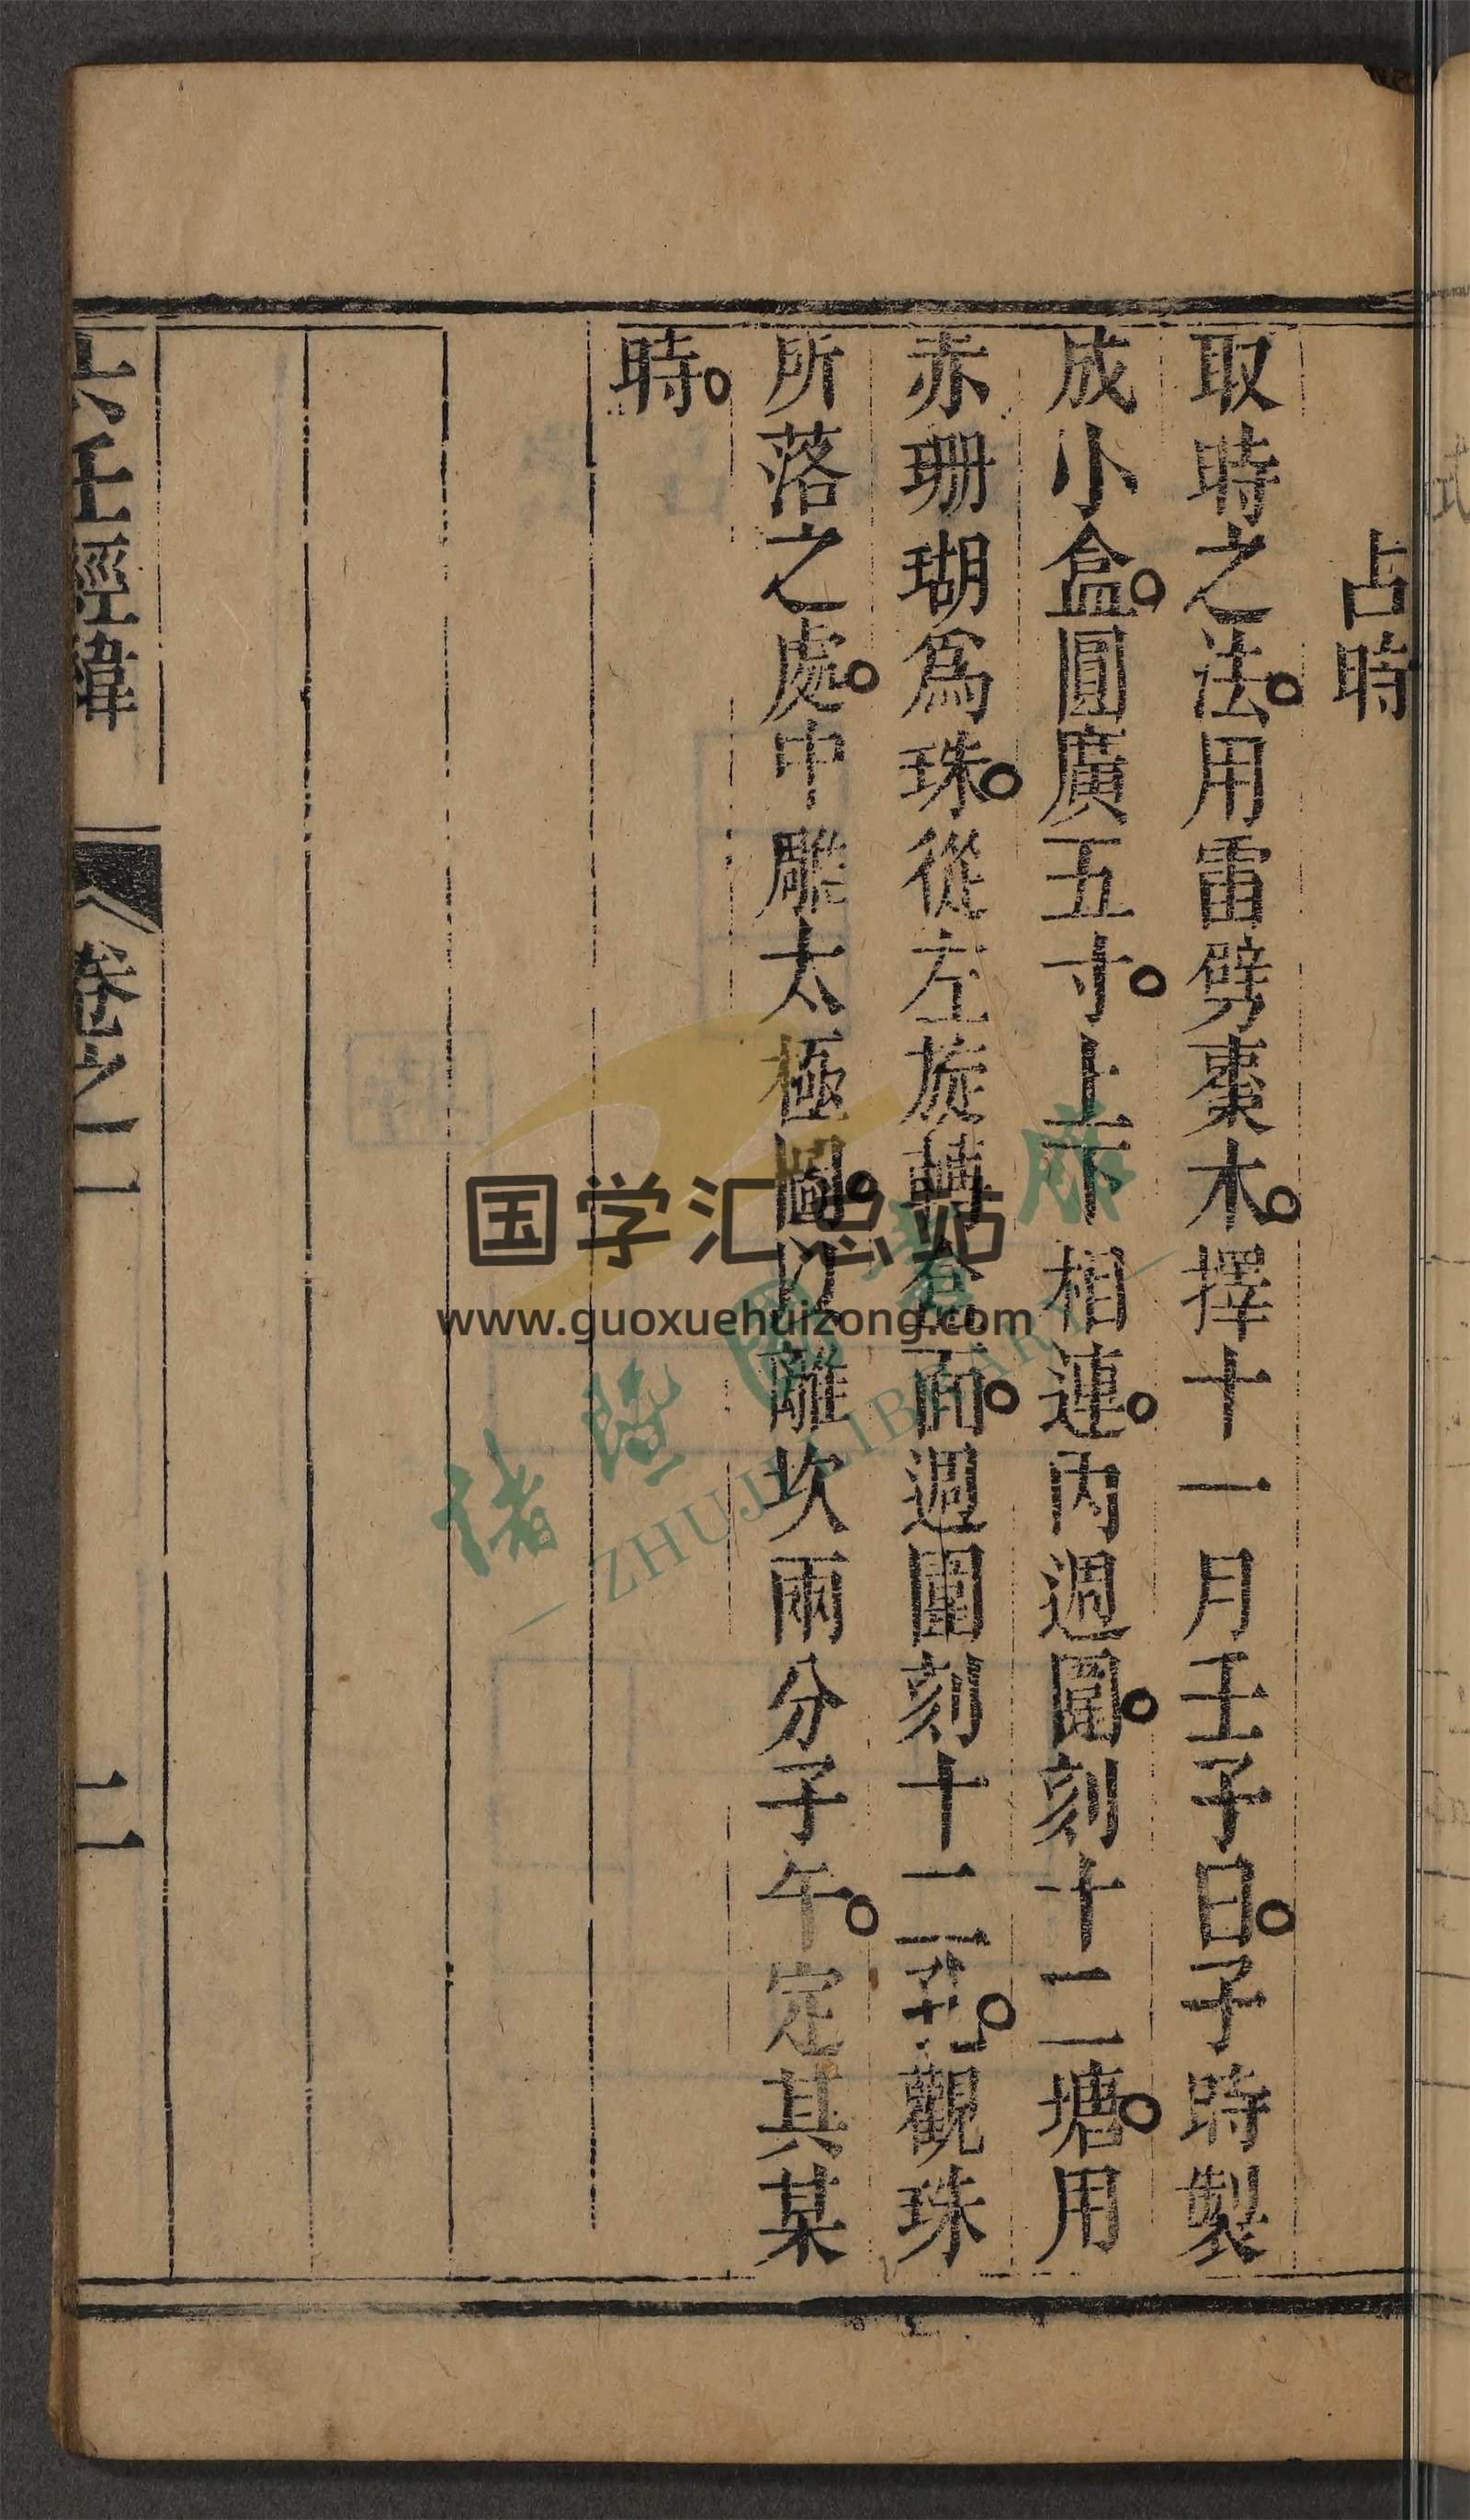 占時
取時之法。用雷劈棗木。擇十一月壬子日。子時製
成小盒。圓廣五寸。上下相連。內週圍。刻十二塘。用
赤珊瑚爲珠。從左旋轉盒面。週圍刻十二孔。觀珠
所落之處。中雕太極圖。以離坎兩分子午。定其某
時。
六壬經緯 卷之一 十一
国学汇总站
www.guoxuehuizong.com
諸暨圖書館
ZHUJI LIBRARY